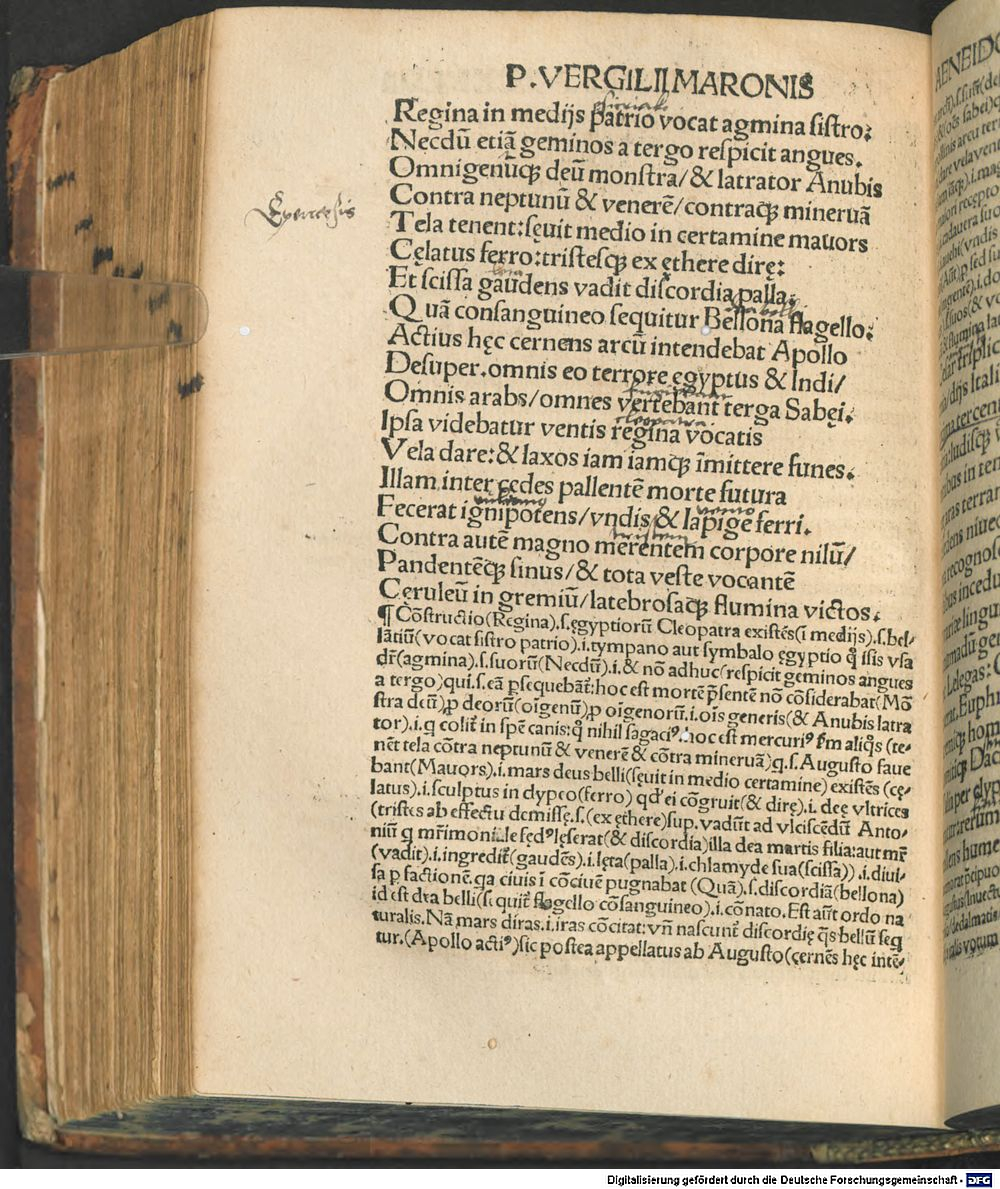 P. VERGILII MARONIS
Regina in medijs patrio vocat agmina sistro:
Necdū etiā geminos a tergo respicit angues.
Omnigenūqꝫ deū monstra/ & latrator Anubis
Contra neptunū & venerē/contraqꝫ mineruā
Tela tenent: sęuit medio in certamine mauors
Cęlatus ferro: tristesqꝫ ex ęthere dirę:
Et scissa gaudens vadit discordia palla:
Quā consanguineo sequitur Bellona flagello:
Actius hęc cernens arcū intendebat Apollo
Desuper. omnis eo terrore ęgyptus & Indi/
Omnis arabs/omnes vertebant terga Sabęi.
cleopatra
Ipsa videbatur ventis regina vocatis
Vela dare: & laxos iam iamqꝫ īmittere funes.
Illam inter cędes pallentē morte futura
vulcano
Fecerat ignipotens/vndis & Iapige ferri.
Contra autē magno merentem corpore nilū/
Pandentēqꝫ sinus/& tota veste vocantē
Cęruleū in gremiū/latebrosaqꝫ flumina victos.
¶ Cōstructio(Regina).s.ęgyptiorū Cleopatra existēs(ī medijs).s.bel-
lātiū(vocat sistro patrio).i.tympano aut symbalo ęgyptio q̄ isis vsa
dr̄(agmina).s.suorū(Necdū).i.& nō adhuc(respicit geminos angues
a tergo)qui.s.eā ꝑsequebāt̄:hoc est mortē p̄sentē nō cōsiderabat(Mō
stra deū)ꝓ deorū(oīgenū)ꝓ oīgenorū.i.oīs generis(& Anubis latra
tor).i.q colit̄ in spē canis:q̄ nihil sagaciꝰ.hoc est mercuriꝰ fm aliq̄s (te-
nēt tela cōtra neptunū & venerē & cōtra mineruā)q.s.Augusto faue
bant(Mauors).i.mars deus belli(sęuit in medio certamine) existēs (cę-
latus).i.sculptus in clypeo(ferro) qd̓ ei cōgruit(& dirę).i.deę vltrices
(tristes ab effectu demissę.s.(ex ęthere)sup.vadūt ad vlciscēdū Anto-
niū q mr̄imoniale fedꝰ lęserat(& discordia)illa dea martis filia:aut mr̄
(vadit).i.ingredit̄(gaudēs).i.lęta(palla).i.chlamyde sua(scissa)).i.diui-
sa ꝑ factionē.qa ciuis ī cōciuē pugnabat (Quā).s.discordiā(bellona)
id est dea belli(sequit̄ flagello cōsanguineo).i.cōnato.Est aūt ordo na
turalis.Nā mars diras.i.iras cōcitat:vn̄ nascunt̄ discordię q̄s bellū seq
tur.(Apollo actiꝰ)sic postea appellatus ab Augusto(cernēs hęc intē-
Digitalisierung gefördert durch die Deutsche Forschungsgemeinschaft - DFG